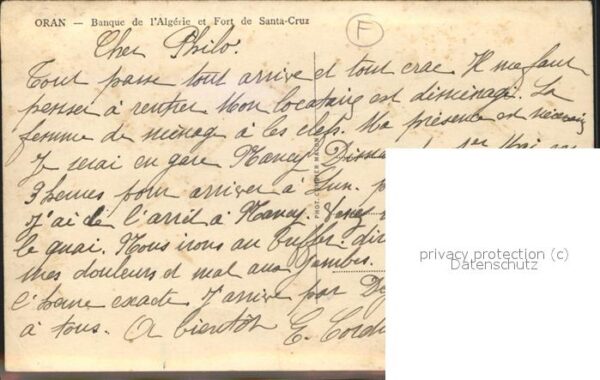 ORAN — Banque de l'Algérie et Fort de Santa-Cruz
F
Cher Philo.
Tout passe tout arrive et tout crac Il me faut
penser à rentrer Mon locataire est déménagé. La
femme de ménage a les clefs. Ma présence est nécessaire
Je serai en gare Nancy Dimanche 1er Mai
3 heures pour arriver à Lun.
J'ai de l'arrêt à Nancy. Venez
le quai. Nous irons au buffet.
mes douleurs et mal aux jambes.
l'heure exacte J'arrive par
à tous. A bientôt E.
PHOT.
privacy protection (c)
Datenschutz